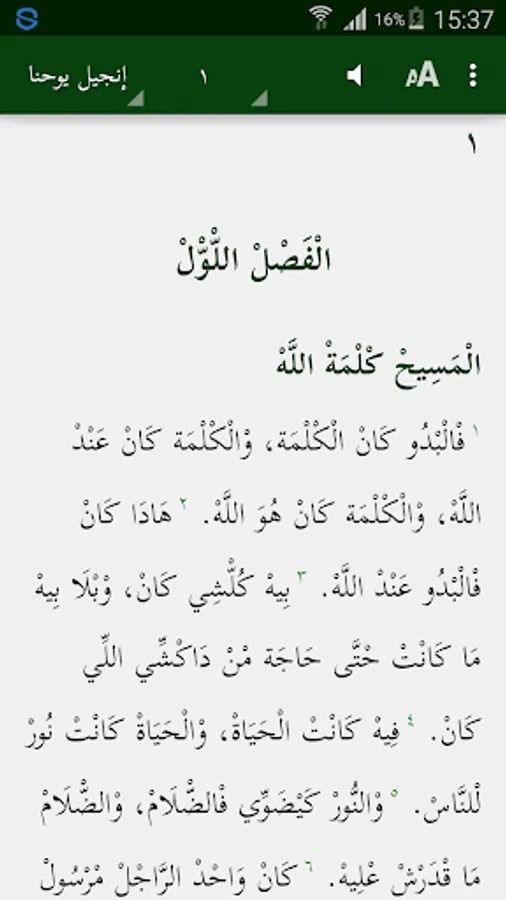 16% 15:37
إنجيل يوحنا ١ AA
١
الْفَصْلْ اللُّوّْلْ
الْمَسِيحْ كْلْمَةْ اللَّهْ
١ فْالْبْدُو كَانْ الْكْلْمَة، وْالْكْلْمَة كَانْ عَنْدْ
اللَّهْ، وْالْكْلْمَة كَانْ هُوَ اللَّهْ. ٢ هَادَا كَانْ
فْالْبْدُو عَنْدْ اللَّهْ. ٣ بِيهْ كُلّْشِي كَانْ، وْبْلَا بِيهْ
مَا كَانْتْ حْتَّى حَاجَة مْنْ دَاكْشِّي اللِّي
كَانْ. ٤ فِيهْ كَانْتْ الْحَيَاةْ، وْالْحَيَاةْ كَانْتْ نُورْ
لْلنَّاسْ. ٥ وْالنُّورْ كَيْضَوِّي فْالضّْلَامْ، وْالضّْلَامْ
مَا قْدَرْشْ عْلِيهْ. ٦ كَانْ وَاحْدْ الرَّاجْلْ مْرْسُولْ